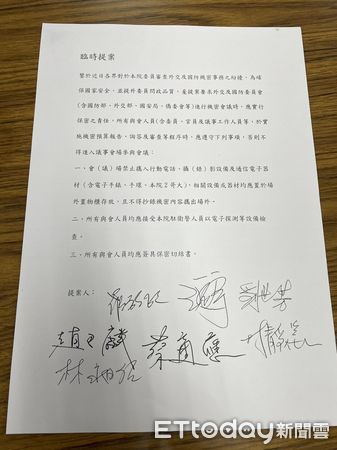 臨時提案
鑒於近日各界對於本院委員審查外交及國防機密事務之紛擾，為確
保國家安全，並提升委員問政品質，爰提案要求外交及國防委員會
(含國防部、外交部、國安局、僑委會等)進行機密會議時，應實行
保密之責任，所有與會人員(含委員、官員及議事工作人員等，於實
施機密預算報告、詢答及審查等程序時，應遵守下列事項，否則不
得進入議事會場參與會議：
一、會(議)場禁止攜入行動電話、攝(錄)影設備及通信電子器
材(含電子手錶、手環、本院2哥大)，相關設備或器材均應置於場
外置物櫃存放，且不得抄錄機密內容攜出場外。
二、所有與會人員均應接受本院駐衛警人員以電子探測等設備檢
查。
三、所有與會人員均應簽具保密切結書。
提案人：
ETtoday新聞雲